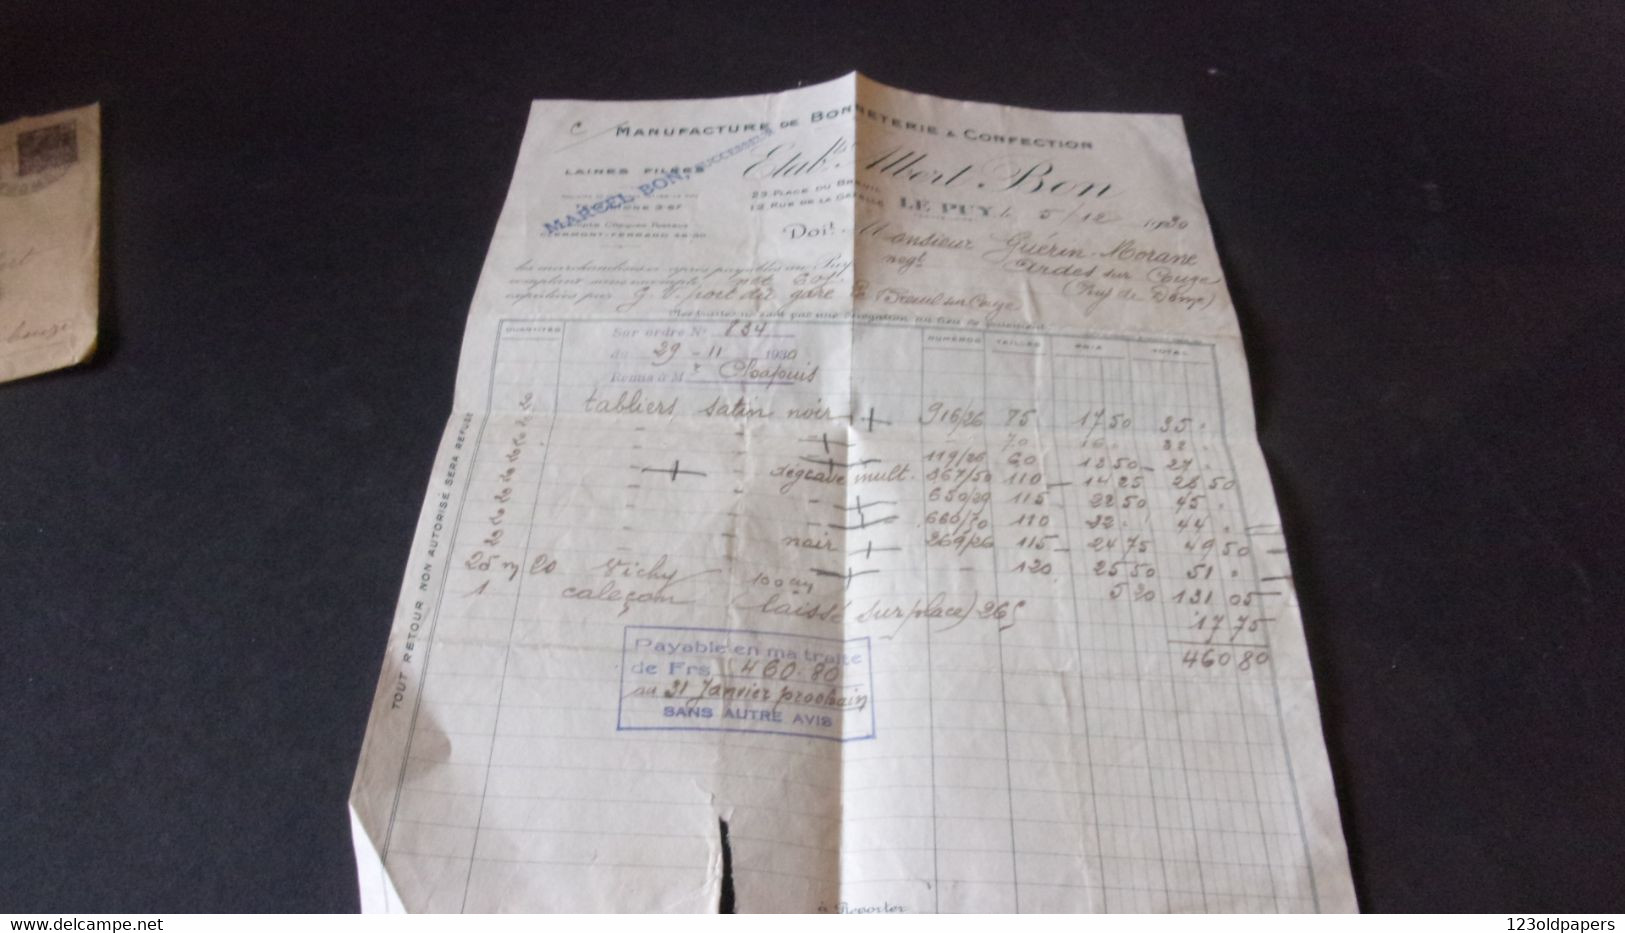 MANUFACTURE DE BONNETERIE & CONFECTION
LAINES FILÉES
Etab.ts Albert Bon
MARCEL BON, SUCCESSEUR
23 PLACE DU BREUIL
12 RUE DE LA GAZELLE
TÉLÉPHONE 3-67
CLERMONT-FERRAND
LE PUY, le 5/12 1930
Doit Monsieur Guérin-Morane
negt Ardes sur Couze
(Puy de Dôme)
les marchandises ci-après payables au Puy
comptant sans escompte
expédiées par G.V. port dû gare Breuil sur Couze
QUANTITÉS NUMÉROS TAILLES PRIX TOTAL
Sur ordre No 834
du 29-11 1930
Remis à Mr
tabliers satin noir 916/26 75 17 50 35 "
" " " 70 16 " 32 "
119/26 60 13 50 27 "
dégravé mult. 367/50 110 14 25 28 50
650/29 115 22 50 45 "
660/70 110 22 " 44 "
noir 269/26 115 24 75 49 50
120 25 50 51 "
25 m 20 Vichy 100 cm 5 20 131 05
1 caleçon (laissé sur place) 265 17 75
460 80
Payable en ma traite
de Frs 460.80
au 31 Janvier prochain
SANS AUTRE AVIS
TOUT RETOUR NON AUTORISÉ SERA REFUSÉ
à Reporter
delcampe.net
123oldpapers